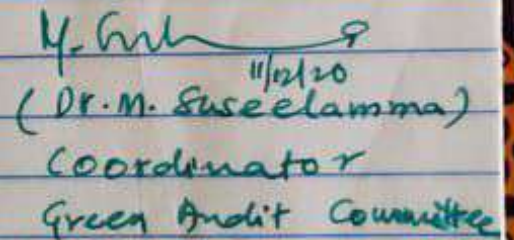 11/12/20
(Dr. M. Suseelamma)
Coordinator
Green Audit Committee